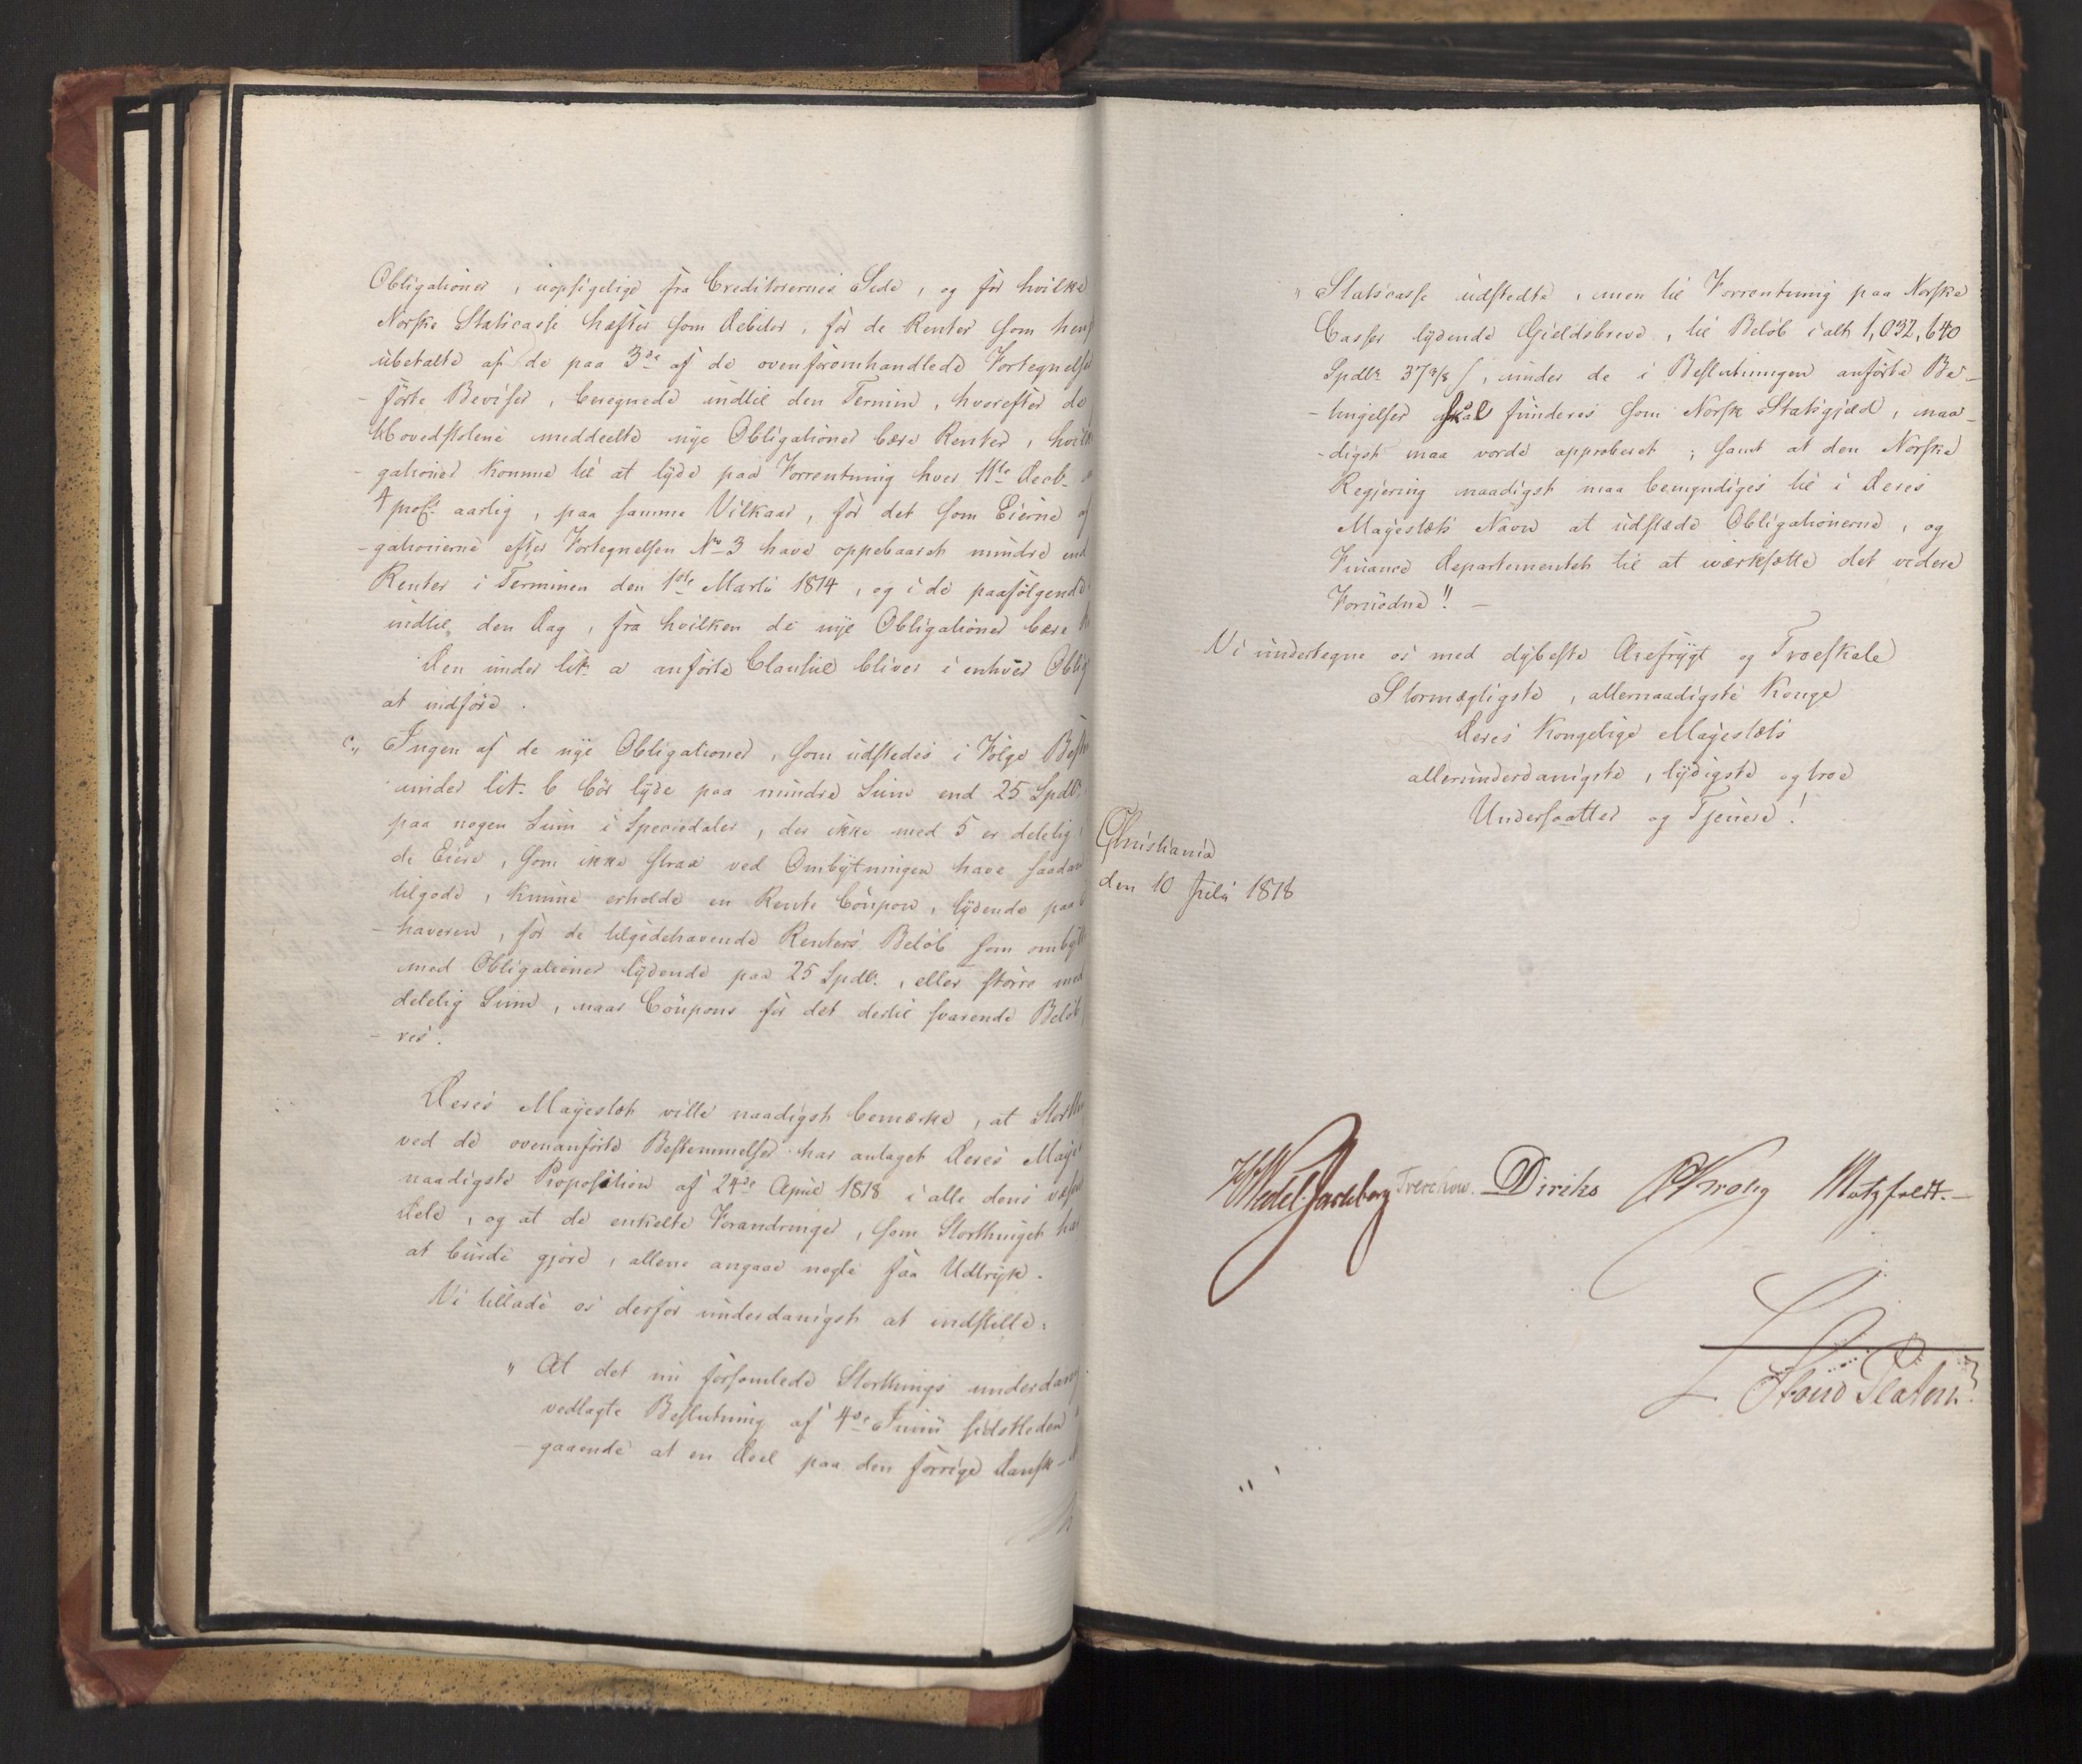 Obligationer, uopsigelige fra Creditorernes Side, og for hvilke
Norske Statscasse hæfter som Debitor, for de Renter som hen
ubetalte af de paa 3de af de ovenforomhandlede Fortegnelser
-förte Beviser, beregnede indtil den Termin, hvorefter de
Hovedstolene meddeelte nye Obligationer bære Renter, hvil
-gationer komme til at lyde paa Forrentning hver 11te Decb.
4 proCt. aarlig, paa samme Vilkaar, for det som Eierne af
-gationerne efter Fortegnelsen No 3 have oppebaaret mindre end
Renter i Terminen den 1ste Martii 1814, og i de paafölgende
indtil den Dag, fra hvilken de nye Obligationer bære
Den under lit. a anförte Clausul bliver i enhver Oblig
at indföre.
c,, Ingen af de nye Obligationer, som udstedes i Fölge Best
under lit. b bör lyde paa mindre Sum end 25 Spdlr.
paa nogen Sum i Speciedaler, der ikke med 5 er delelig
de Eiere, som ikke strax ved Ombytningen have saadan
tilgode, kunne erholde en Rente Coupon, lydende paa
-haveren, for de tilgodehavende Renters Belöb som ombytt
med Obligationer lydende paa 25 Spdlr., eller större med
delelig Sum, naar Coupons for det dertil svarende Belöb
-res.
Deres Majestæt ville naadigst bemærke, at Storth
ved de ovenanförte Bestemmelser har antaget Deres Maje
naadigste Proposition af 24de April 1818 i alle dens væsen
Dele, og at de enkelte Forandringer, som Storthinget har
at burde gjöre, allene angaae nogle faa Udtryk.
Vi tillade os derfor underdanigst at indstille:
" At det nu forsamlede Storthings underdanig
vedlagte Beslutning af 4de Junii sidstleden
-gaaende at en Deel paa den forrige Dansk-
" Statscasse udstedte, men til Forrentning paa Norske
Casser lydende Gjeldsbreve, til Belöb i alt 1,032,640
Spdlr 37 3/8 ſ, under de i Beslutningen anförte Be-
-tingelser skal funderes som Norsk Statsgjæld, naa-
-digst maa vorde approberet; samt at den Norske
Regjering naadigst maa bemyndiges til i Deres
Majestæts Navn at udstæde Obligationerne, og
Finance Departementet til at iværksætte det videre
Fornödne". -
Vi undertegne os med dybeste Ærefrygt og Troeskab
Stormægtigste, allernaadigste Konge
Deres Kongelige Majestæts
allerunderdanigste, lydigste og troe
Undersaatter og Tjenere!
Christiania
den 10 Julii 1818
HWedel Jarlsberg Treschow. Diriks Krohg Motzfeldt. -